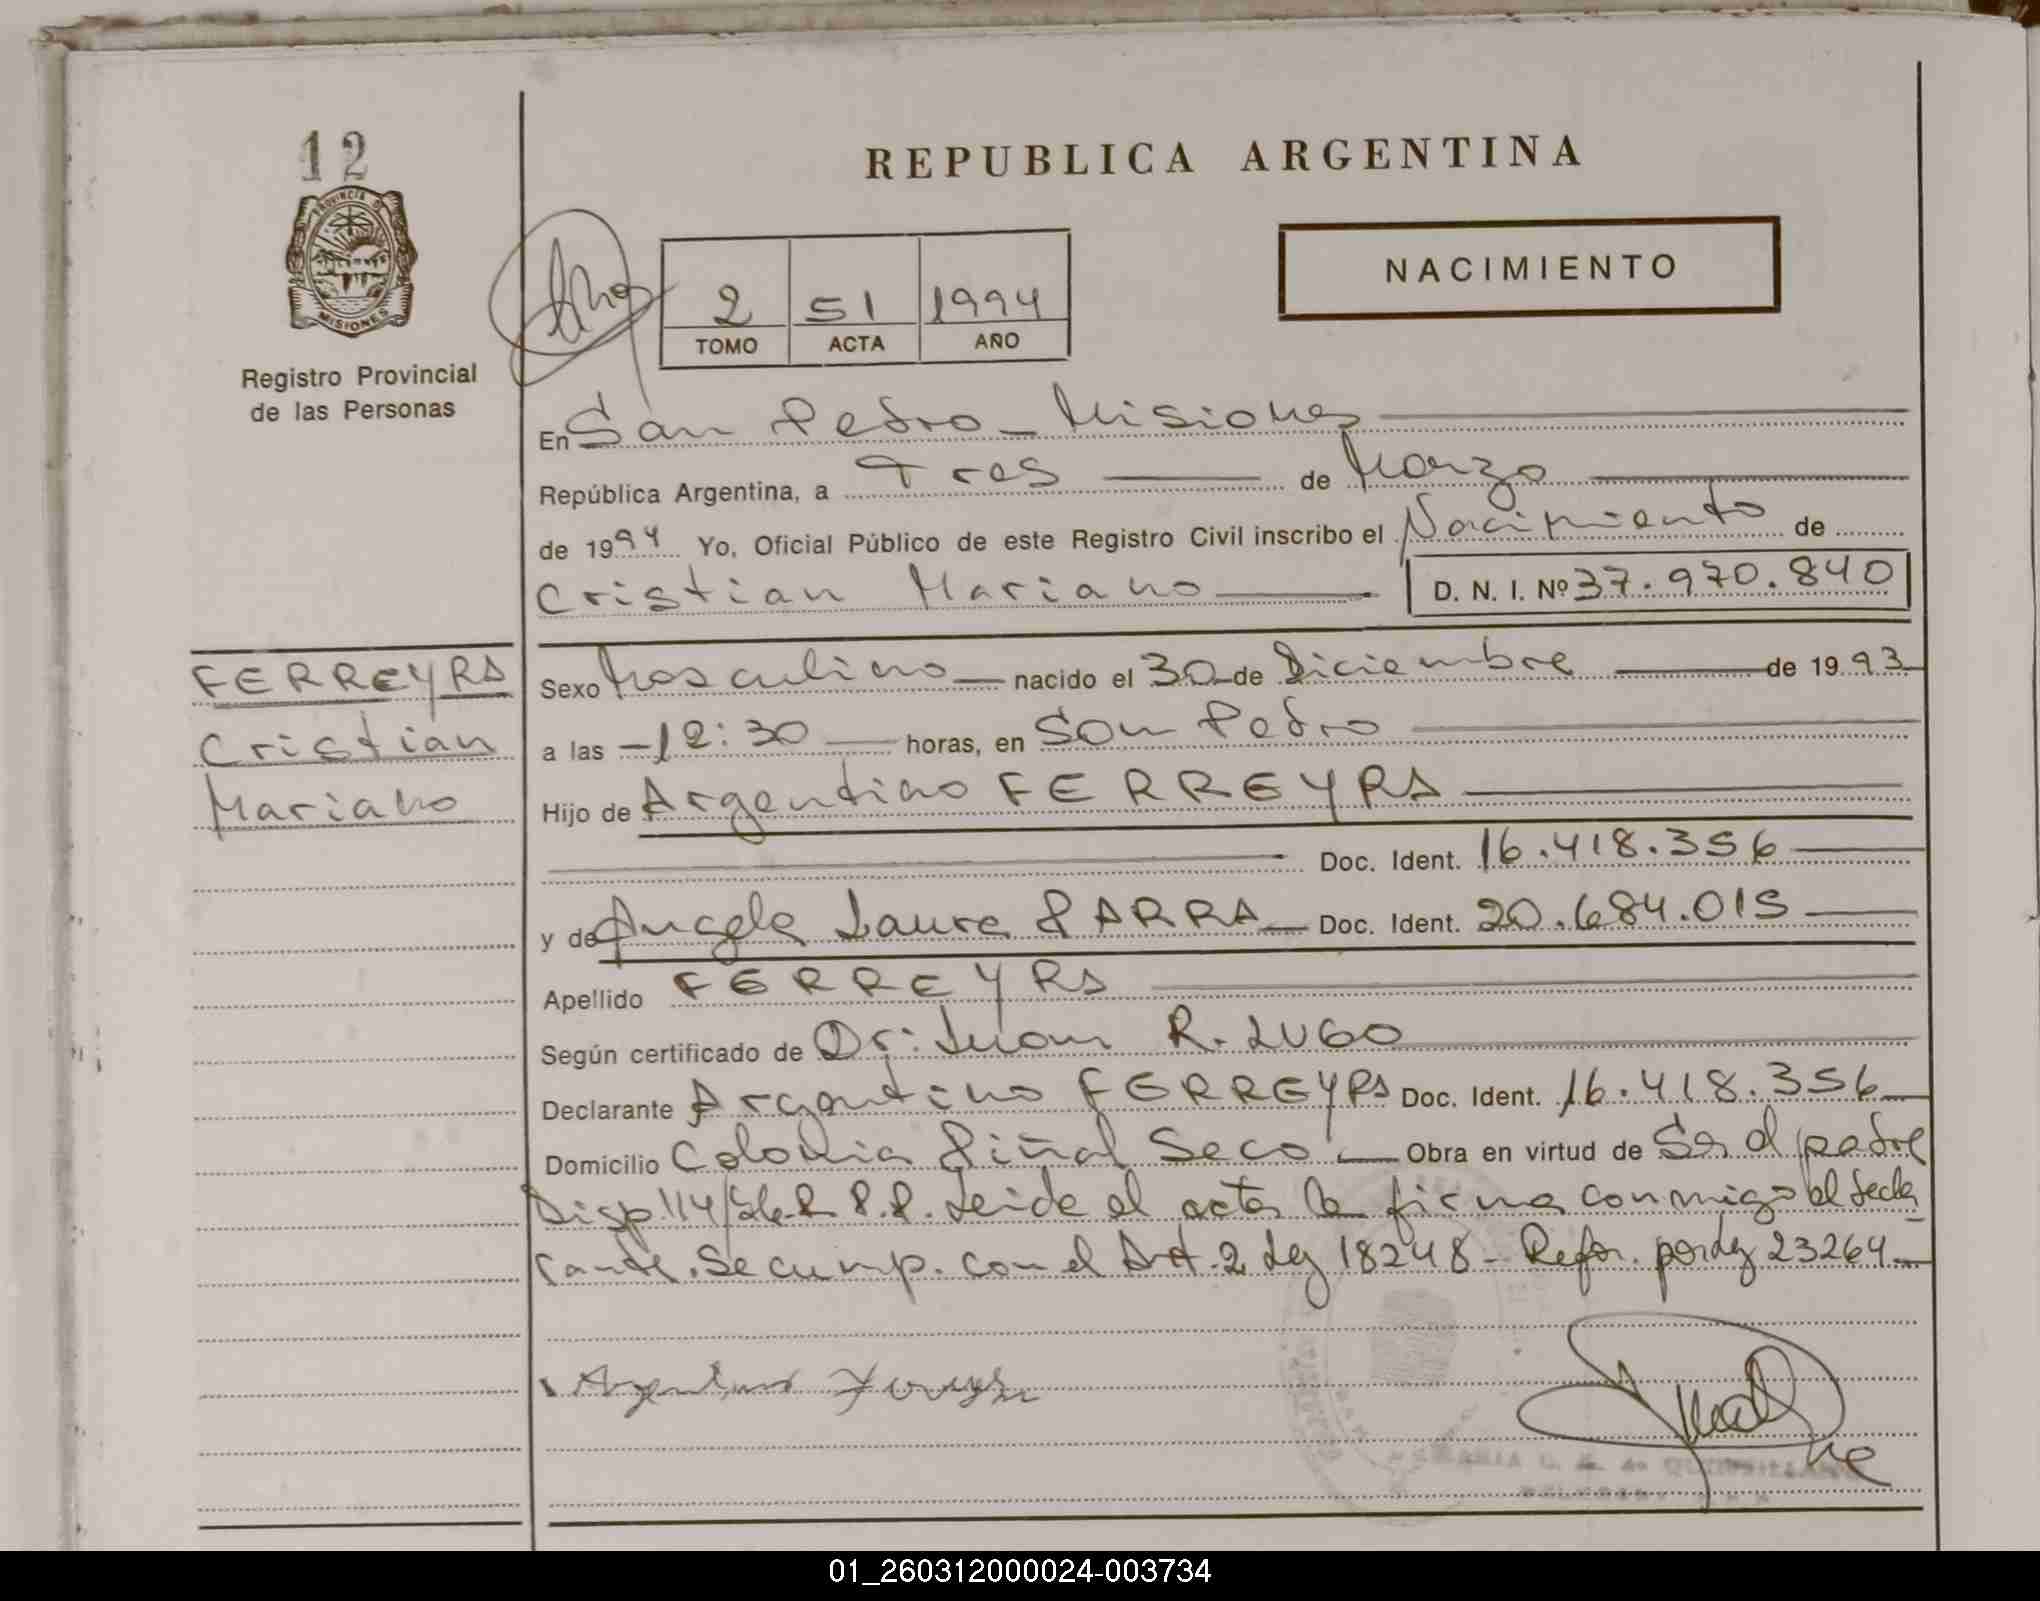 12
PROVINCIA DE
MISIONES
Registro Provincial
de las Personas
REPUBLICA ARGENTINA
NACIMIENTO
2 51 1994
TOMO ACTA AÑO
En San Pedro - Misiones
República Argentina, a Tres de Marzo
de 1994 Yo, Oficial Público de este Registro Civil inscribo el Nacimiento de
Cristian Mariano D. N. I. Nº 37.970.840
FERREYRA
Cristian
Mariano
Sexo Masculino nacido el 30 de Diciembre de 1993
a las -12:30 horas, en San Pedro
Hijo de Argentino FERREYRA
Doc. Ident. 16.418.356
y de Angela Laura PARRA Doc. Ident. 20.684.015
Apellido FERREYRA
Según certificado de Dr: Juan R. LUGO
Declarante Argentino FERREYRA Doc. Ident. 16.418.356
Domicilio Colonia Piñal Seco Obra en virtud de Ser el padre
Disp. 114/ R.P.P. Leida el acta la firma conmigo el decla
rante. Se cump. con el Art. 2 Ley 18248 - Refor. por Ley 23264
Argentino Ferreyra
01_260312000024-003734